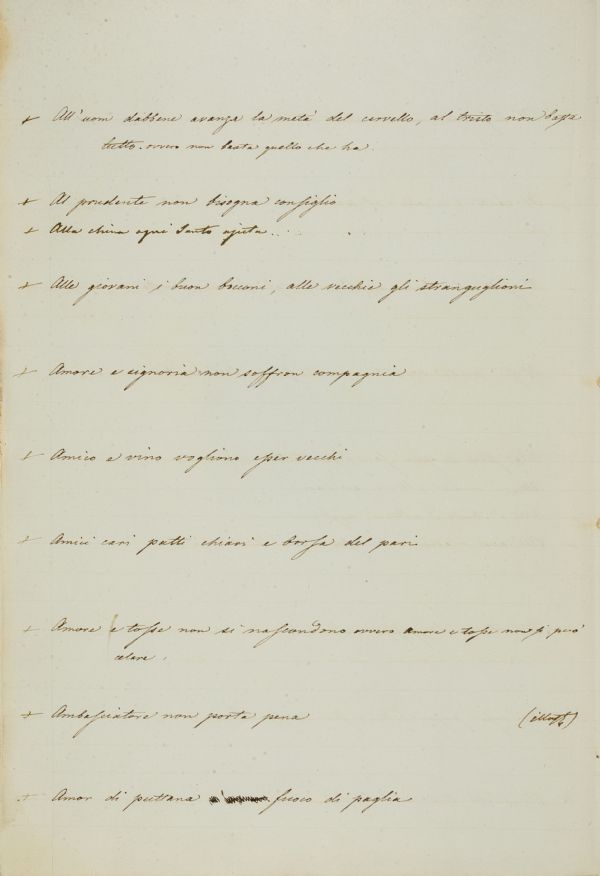 + All'uom dabbene avanza la metà del cervello, al tristo non basta
tutto. ovvero non basta quello che ha
+ Al prudente non bisogna consiglio
+ Alla china ogni Santo ajuta...
+ Alle giovani i buon bocconi, alle vecchie gli stranguglioni
+ Amore e signoria non soffron compagnia
+ Amico e vino vogliono esser vecchi
+ Amici cari patti chiari e borsa del pari
+ Amore e tosse non si nascondono ovvero amore e tosse non si può
celare.
+ Ambasciatore non porta pena (illust.)
+ Amor di puttana fuoco di paglia